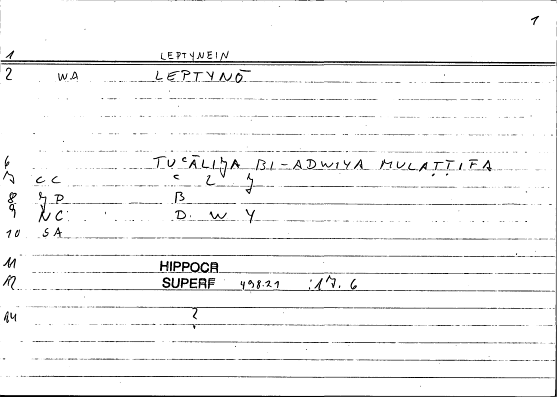 1
1 LEPTYNEIN
2 WA LEPTYNŌ
6 TUʿĀLIǦA BI-ADWIYA MULAṬṬIFA
7 CC ʿ L Ǧ
8 ǦP B
9 NC D W Y
10 SA
11 HIPPOCR
12 SUPERF 498.21 :17.6
14